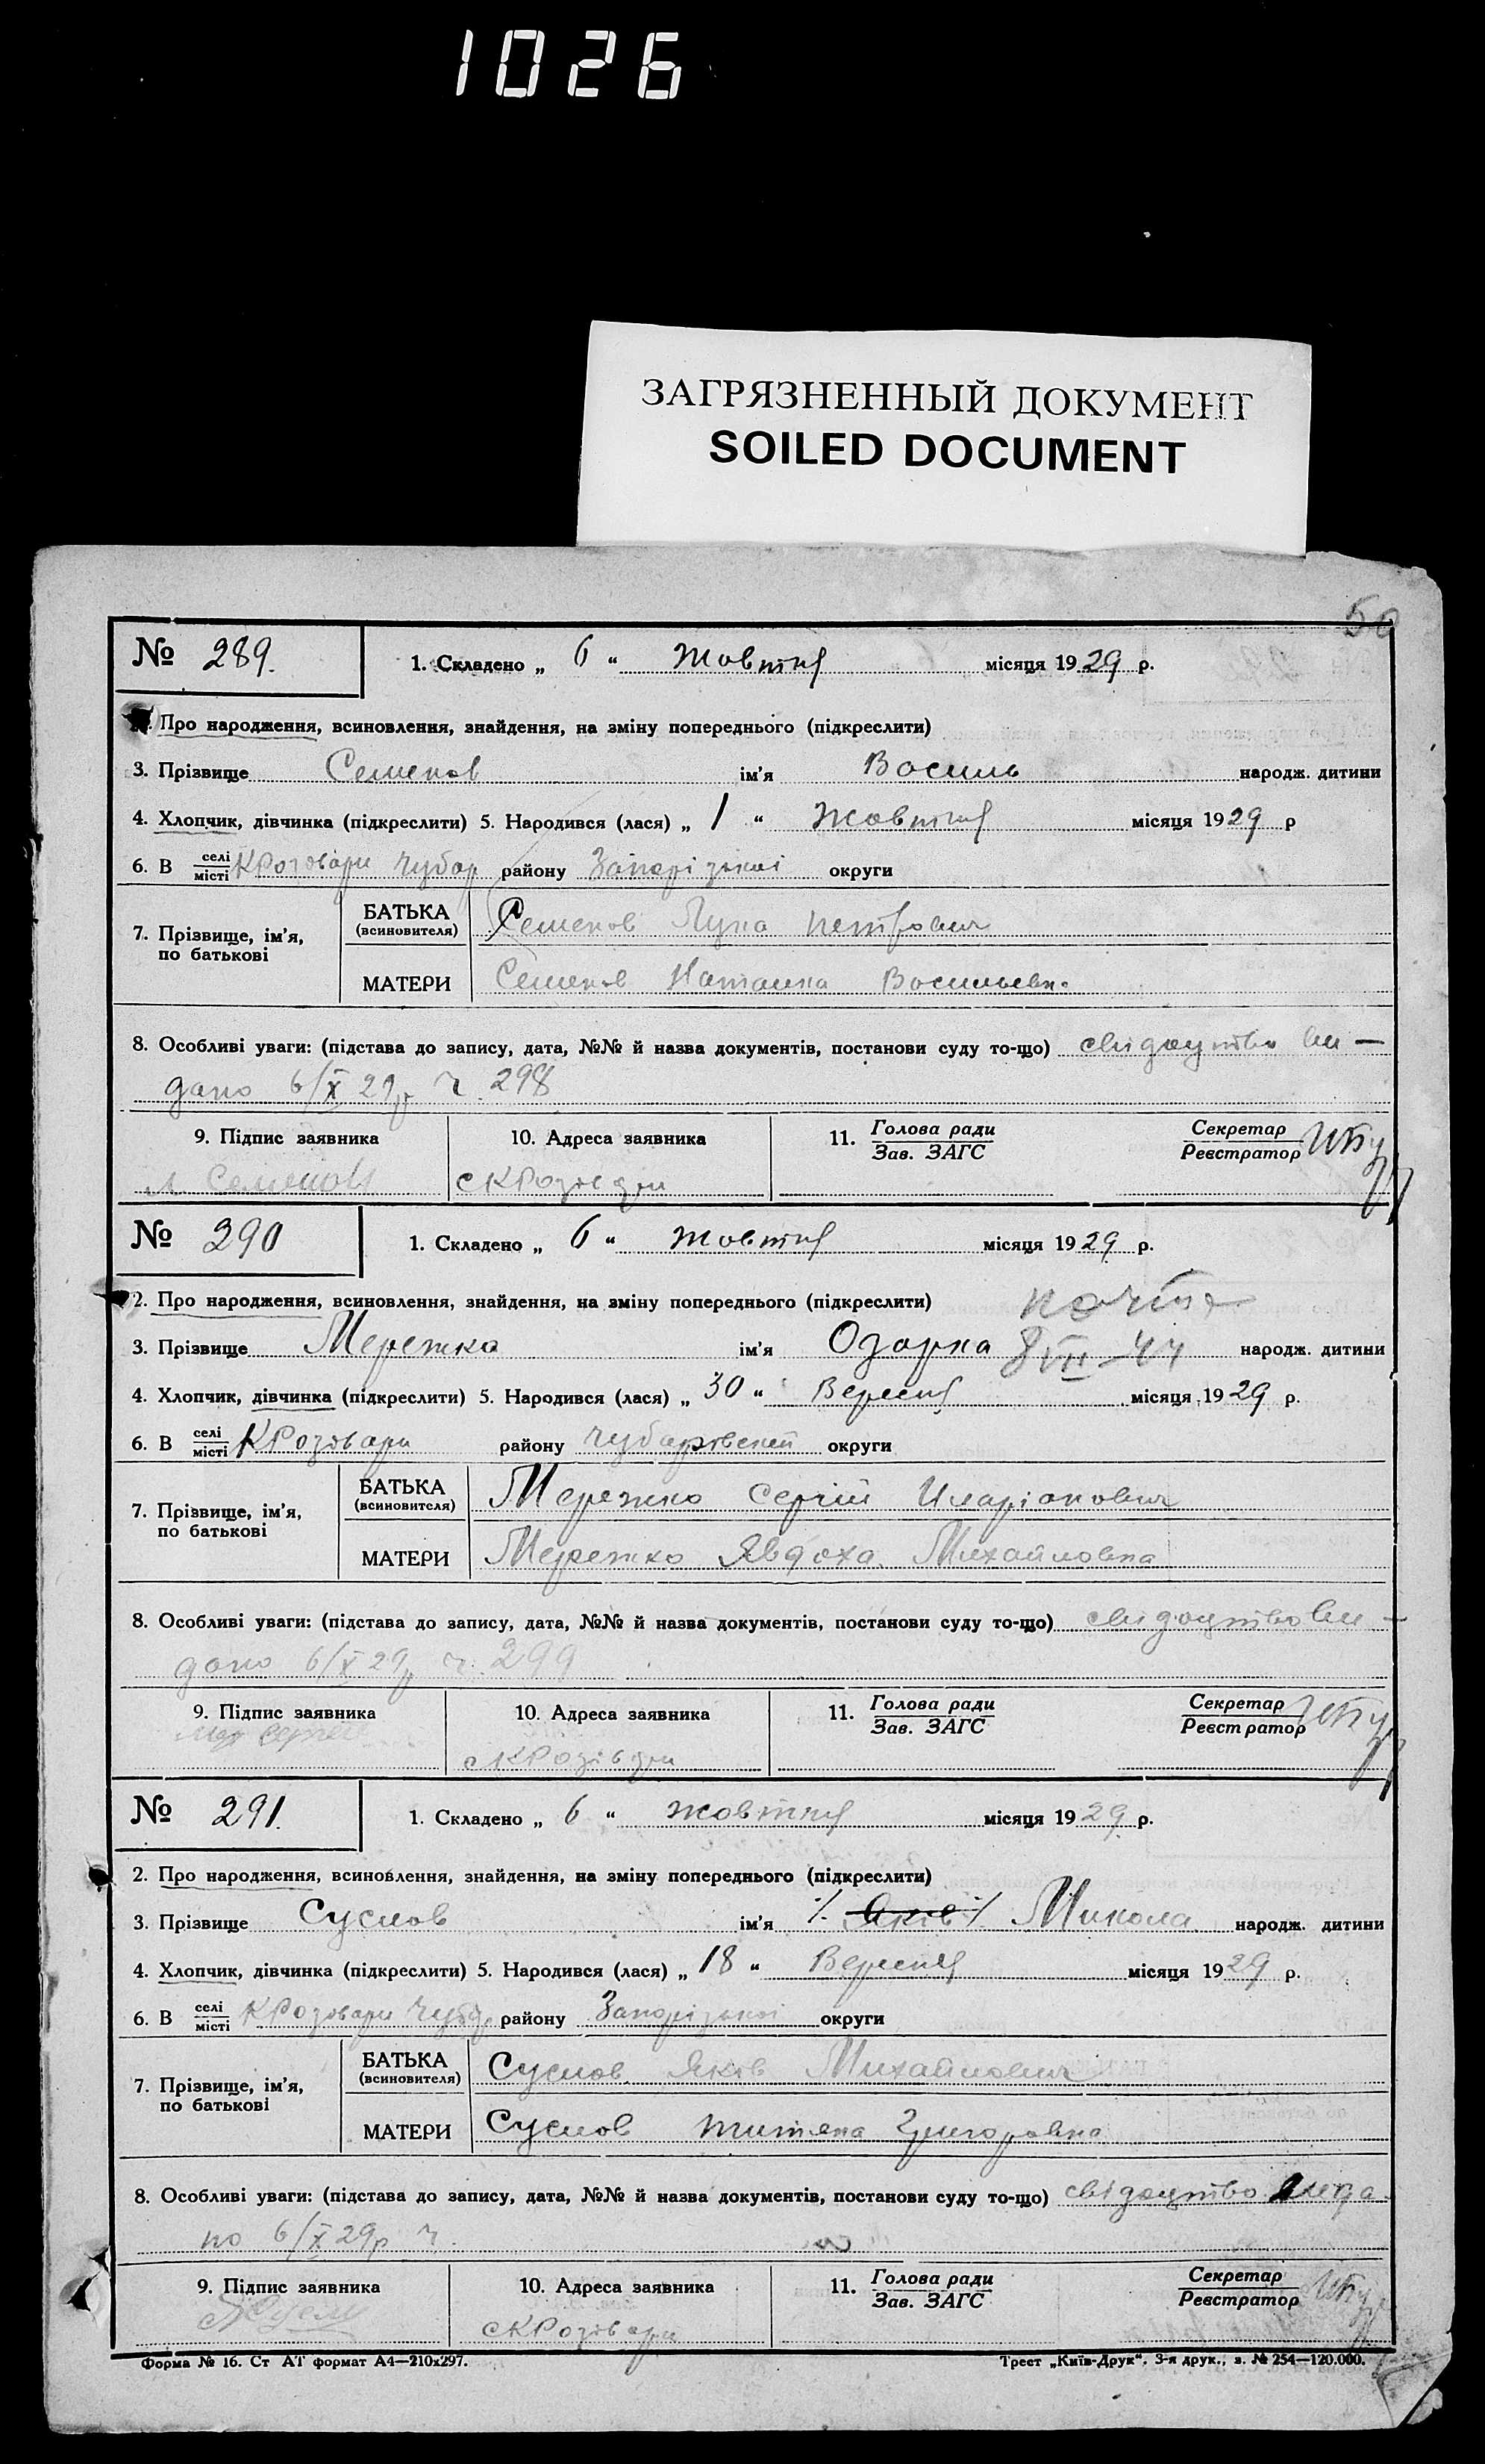 1026
ЗАГРЯЗНЕННЫЙ ДОКУМЕНТ
SOILED DOCUMENT
50
№ 289. 1. Складено „ 6 “ Жовтня місяця 1929 р.
Про народження, всиновлення, знайдення, на зміну попереднього (підкреслити)
3. Прізвище Семенов ім'я Василь народж. дитини
4. Хлопчик, дівчинка (підкреслити) 5. Народився (лася) „ 1 “ Жовтня місяця 1929 р
6. В селі/місті КРозівари Чубар району Запорізької округи
7. Прізвище, ім'я, по батькові
БАТЬКА (всиновителя) Семенов Лука Петрович
МАТЕРИ Семенов Наталка Васильевн.
8. Особливі уваги: (підстава до запису, дата, №№ й назва документів, постанови суду то-що) свидоцтво ви—
дано 6/X 29р ч. 298
9. Підпис заявника 10. Адреса заявника 11. Голова ради/Зав. ЗАГС Секретар/Реєстратор
Л Семенов
№ 290 1. Складено „ 6 “ жовтня місяця 1929 р.
2. Про народження, всиновлення, знайдення, на зміну попереднього (підкреслити)
3. Прізвище Мережко ім'я Одарка 8 VII-44 народж. дитини
4. Хлопчик, дівчинка (підкреслити) 5. Народився (лася) „ 30 “ Вересня місяця 1929 р.
6. В селі/місті КРозівари району округи
7. Прізвище, ім'я, по батькові
БАТЬКА (всиновителя) Мережко Сергій Иларіонович
МАТЕРИ Мережко Явдоха Михайловна
8. Особливі уваги: (підстава до запису, дата, №№ й назва документів, постанови суду то-що) свидоцтво ви—
дано 6/X 29р ч. 299
9. Підпис заявника 10. Адреса заявника 11. Голова ради/Зав. ЗАГС Секретар/Реєстратор
№ 291. 1. Складено „ 6 “ жовтня місяця 1929 р.
2. Про народження, всиновлення, знайдення, на зміну попереднього (підкреслити)
3. Прізвище Суслов ім'я ·/. Яків ·/. Микола народж. дитини
4. Хлопчик, дівчинка (підкреслити) 5. Народився (лася) „ 18 “ Вересня місяця 1929 р.
6. В селі/місті КРозівари району Запорізької округи
7. Прізвище, ім'я, по батькові
БАТЬКА (всиновителя) Суслов Яків Михайлович
МАТЕРИ Суслов Титяна Григоровна
8. Особливі уваги: (підстава до запису, дата, №№ й назва документів, постанови суду то-що) свідоцтво вида
но 6/X 29р ч.
9. Підпис заявника 10. Адреса заявника 11. Голова ради/Зав. ЗАГС Секретар/Реєстратор
сКРозівари
Форма № 16. Ст АТ формат А4—210х297. Трест „Київ-Друк“. 3-я друк., з. № 254—120.000.